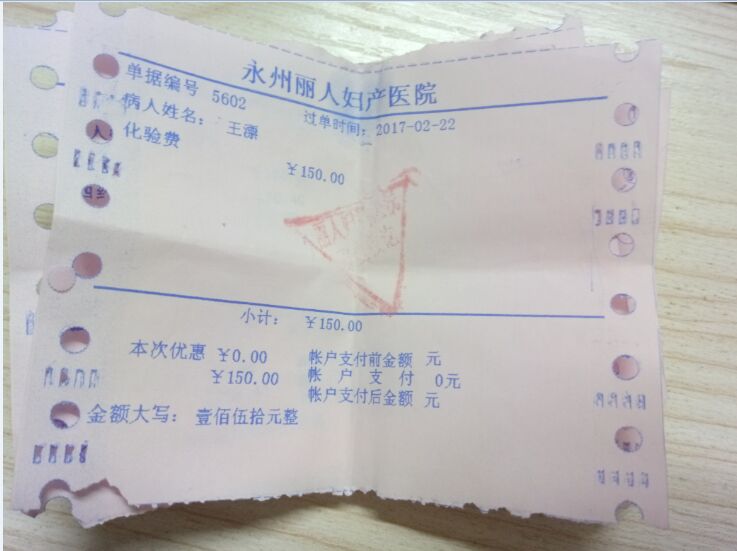 永州丽人妇产医院
单据编号 5602
病人姓名： 王漂 过单时间：2017-02-22
化验费
￥150.00
小计： ￥150.00
本次优惠 ￥0.00 帐户支付前金额 元
￥150.00 帐户支付 0元
帐户支付后金额 元
金额大写： 壹佰伍拾元整